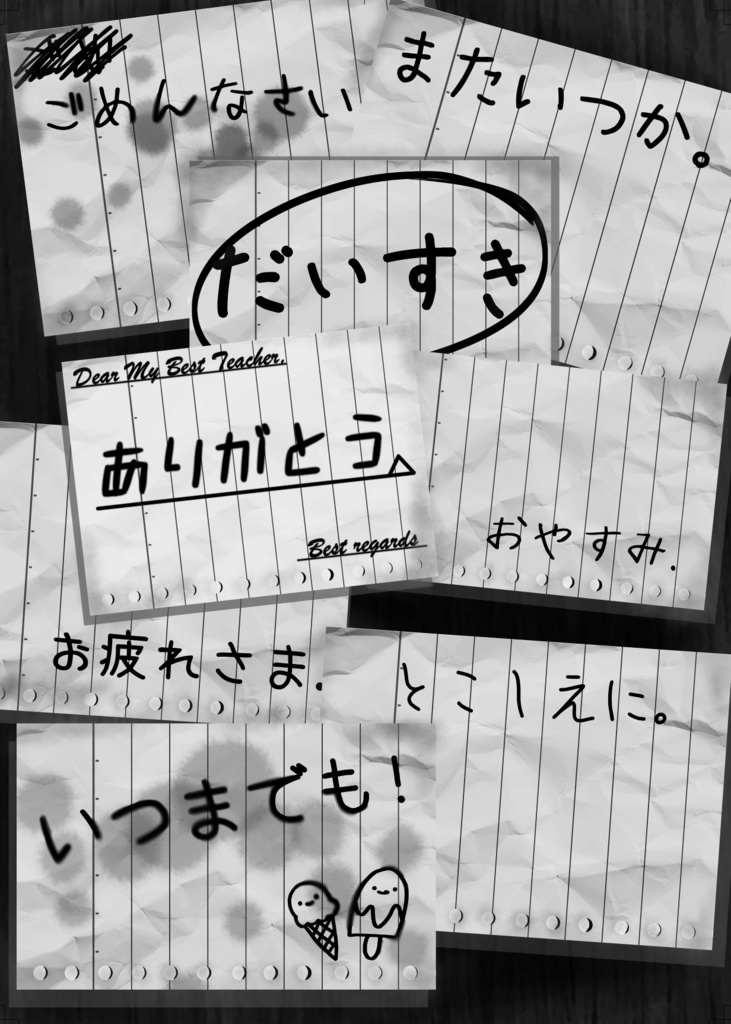 ごめんなさい
またいつか。
だいすき
Dear My Best Teacher,
ありがとう
Best regards
おやすみ.
お疲れさま.
とこしえに。
いつまでも！